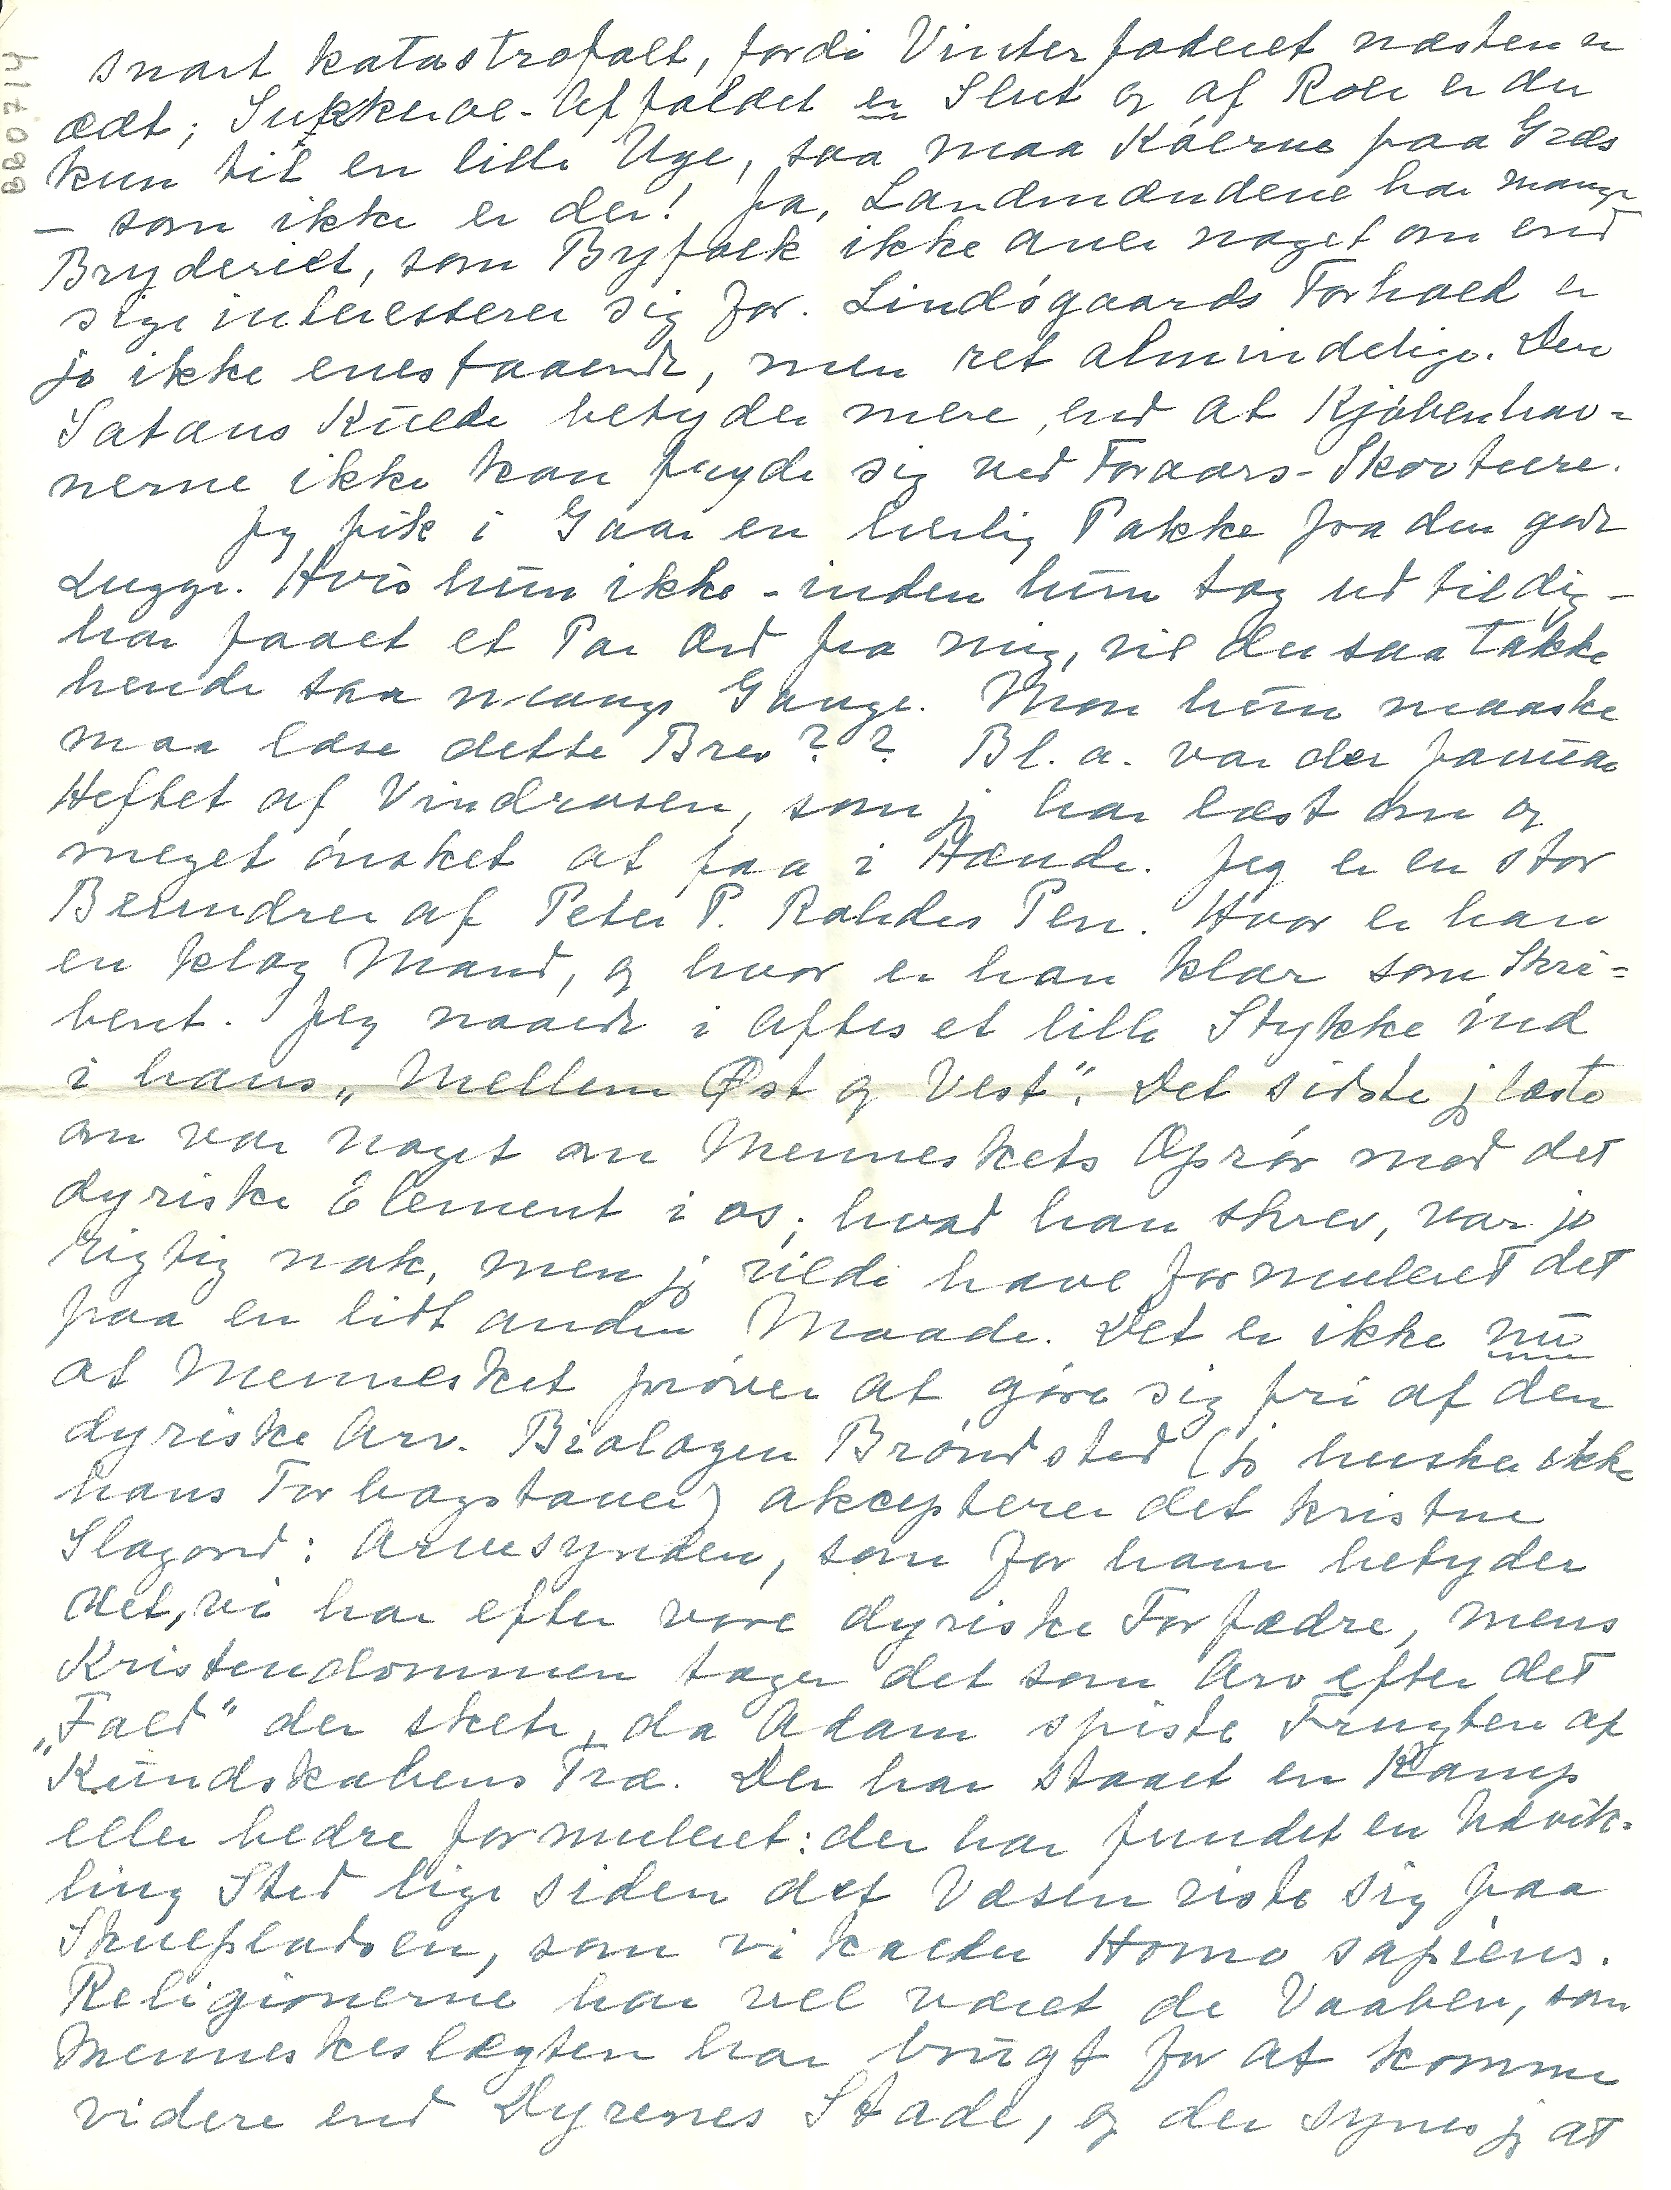 BB0714
snart katastrofalt, fordi Vinterfoderet næsten er
ædt; Sukkerroe-Affaldet er Slut og af Roer er der
kun til en lille Uge, saa maa Køerne paa Græs
– som ikke er der! Ja, Landmændene har mange
Bryderier, som Byfolk ikke aner noget om end
sige interesserer sig for. Lindøgaards Forhold er
jo ikke enestaaende, men ret almindelige. Den
Satans Kulde betyder mere, end at Kjøbenhav=
nerne ikke kan fryde sig ved Foraars-Skovture.
Jeg fik i Gaar en herlig Pakke fra den gode
Lugge. Hvis hun ikke – inden hun tog ud til dig –
har faaet et Par Ord fra mig, vil du saa takke
hende saa mange Gange. Mon hun maaske
maa læse dette Brev?? Bl. a. var der Januar
Heftet af Vindrosen, som jeg har læst om og
meget ønsket at faa i Hænde. Jeg er en stor
Beundrer af Peter P. Rohdes Pen. Hvor er han
en klog Mand, og hvor er han klar som Skri=
bent. Jeg naaede i Aftes et lille Stykke ind
i hans „Mellem Øst og Vest". Det sidste jeg læste
om var noget om Menneskets Oprør mod det
dyriske Element i os; hvad han skrev, var jo
rigtig nok, men jeg vilde have formuleret det
paa en lidt anden Maade. Det er ikke nu
at Mennesket prøver at gøre sig fri af den
dyriske Arv. Biologen Brøndsted (jeg husker ikke
hans Forbogstaver) akcepterer det kristne
Slagord: Arvesynden, som for ham betyder
det, vi har efter vore dyriske Forfædre, mens
Kristendommen tager det som Arv efter det
„Fald" der skete, da Adam spiste Frugten af
Kundskabens Træ. Der har staaet en Kamp
eller bedre formuleret: der har fundet en Udvik=
ling Sted lige siden det Væsen viste sig paa
Skuepladsen, som vi kalder Homo sapiens.
Religionerne har vel været de Vaaben, som
Menneskeslægten har brugt for at komme
videre end Dyrenes Stade, og der synes jeg at